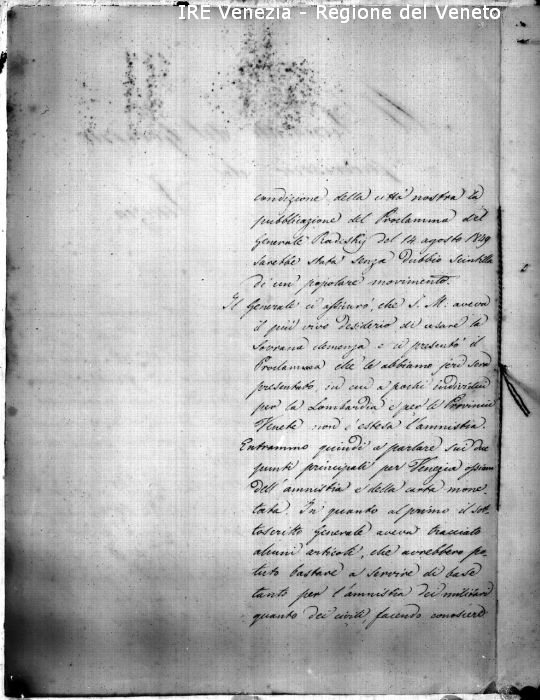 IRE Venezia - Regione del Veneto
condizione della città nostra la
pubblicazione del Proclamma del
Generale Radeskÿ del 14 agosto 1849
sarebbe stata senza dubbio scintilla
di un popolare movimento.
Il Generale ci assicurò, che S. M. aveva
il più vivo desiderio di usare la
Sovrana clemenza e ci presentò il
Proclamma che le abbiamo jeri sera
presentato in cui a pochi individui
per la Lombardia e per le Provincie
Venete non è estesa l'amnistia.
Entrammo quindi a parlare sui due
punti principali per Venezia ossiano
dell'amnistia e della carta mone,
tata. In quanto al primo il sot,
toscritto Generale aveva tracciato
alcuni articoli, che avrebbero po,
tuto bastare a servire di base
tanto per l'amnistia dei militari
quanto dei civili, facendo conoscere